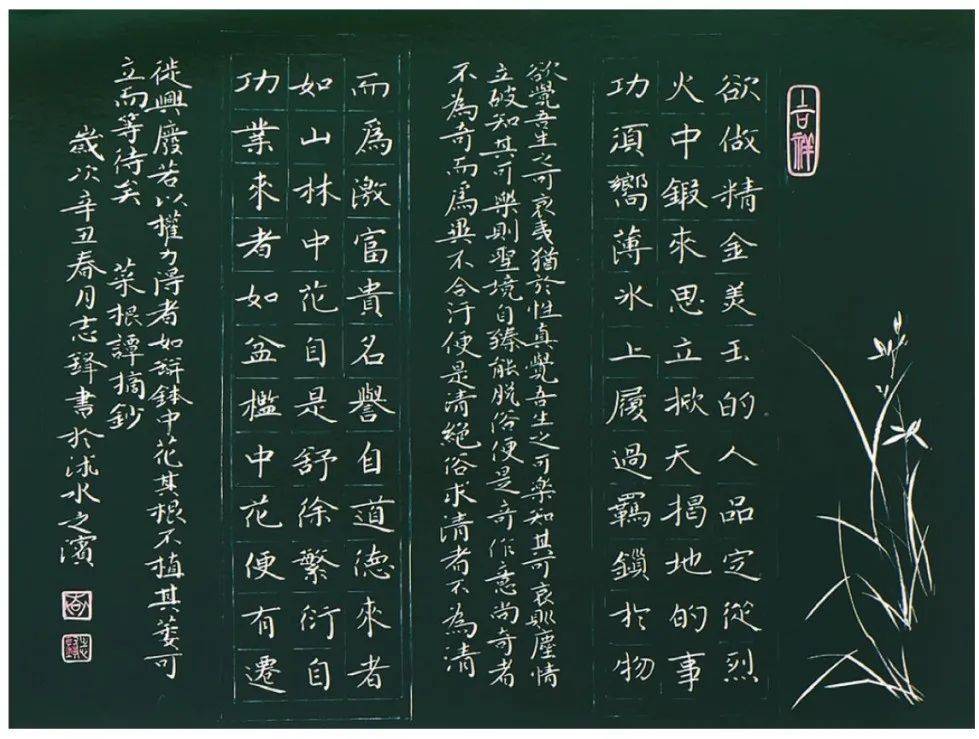 吉祥
欲做精金美玉的人品定從烈
火中鍛來思立掀天揭地的事
功須嚮薄冰上履過羈鎖於物
欲覺吾生之可哀夷猶於性真覺吾生之可樂知其可哀則塵情
立破知其可樂則聖境自臻能脫俗便是奇作意尚奇者
不為奇而爲異不合汙便是清絕俗求清者不為清
而爲激富貴名譽自道德來者
如山林中花自是舒徐繁衍自
功業來者如盆檻中花便有遷
徙興廢若以權力得者如缾鉢中花其根不植其萎可
立而等待矣 菜根譚摘鈔
歲次辛丑春月志鋒書於沭水之濱